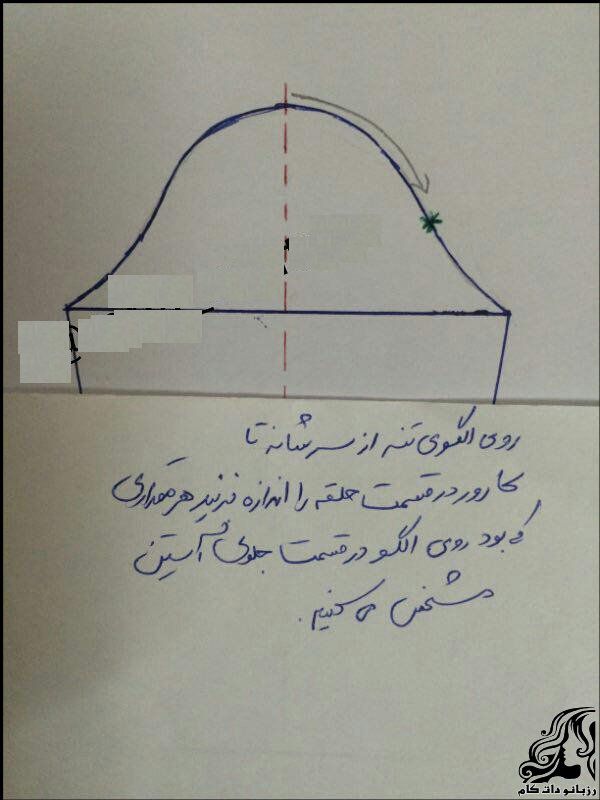 روی الگوی تنه از سرشانه تا
کارور در قسمت حلقه را اندازه بزنید هر مقداری
که بود روی الگو در قسمت جلوی آستین
مشخص می کنیم.
رزبانو دات کام